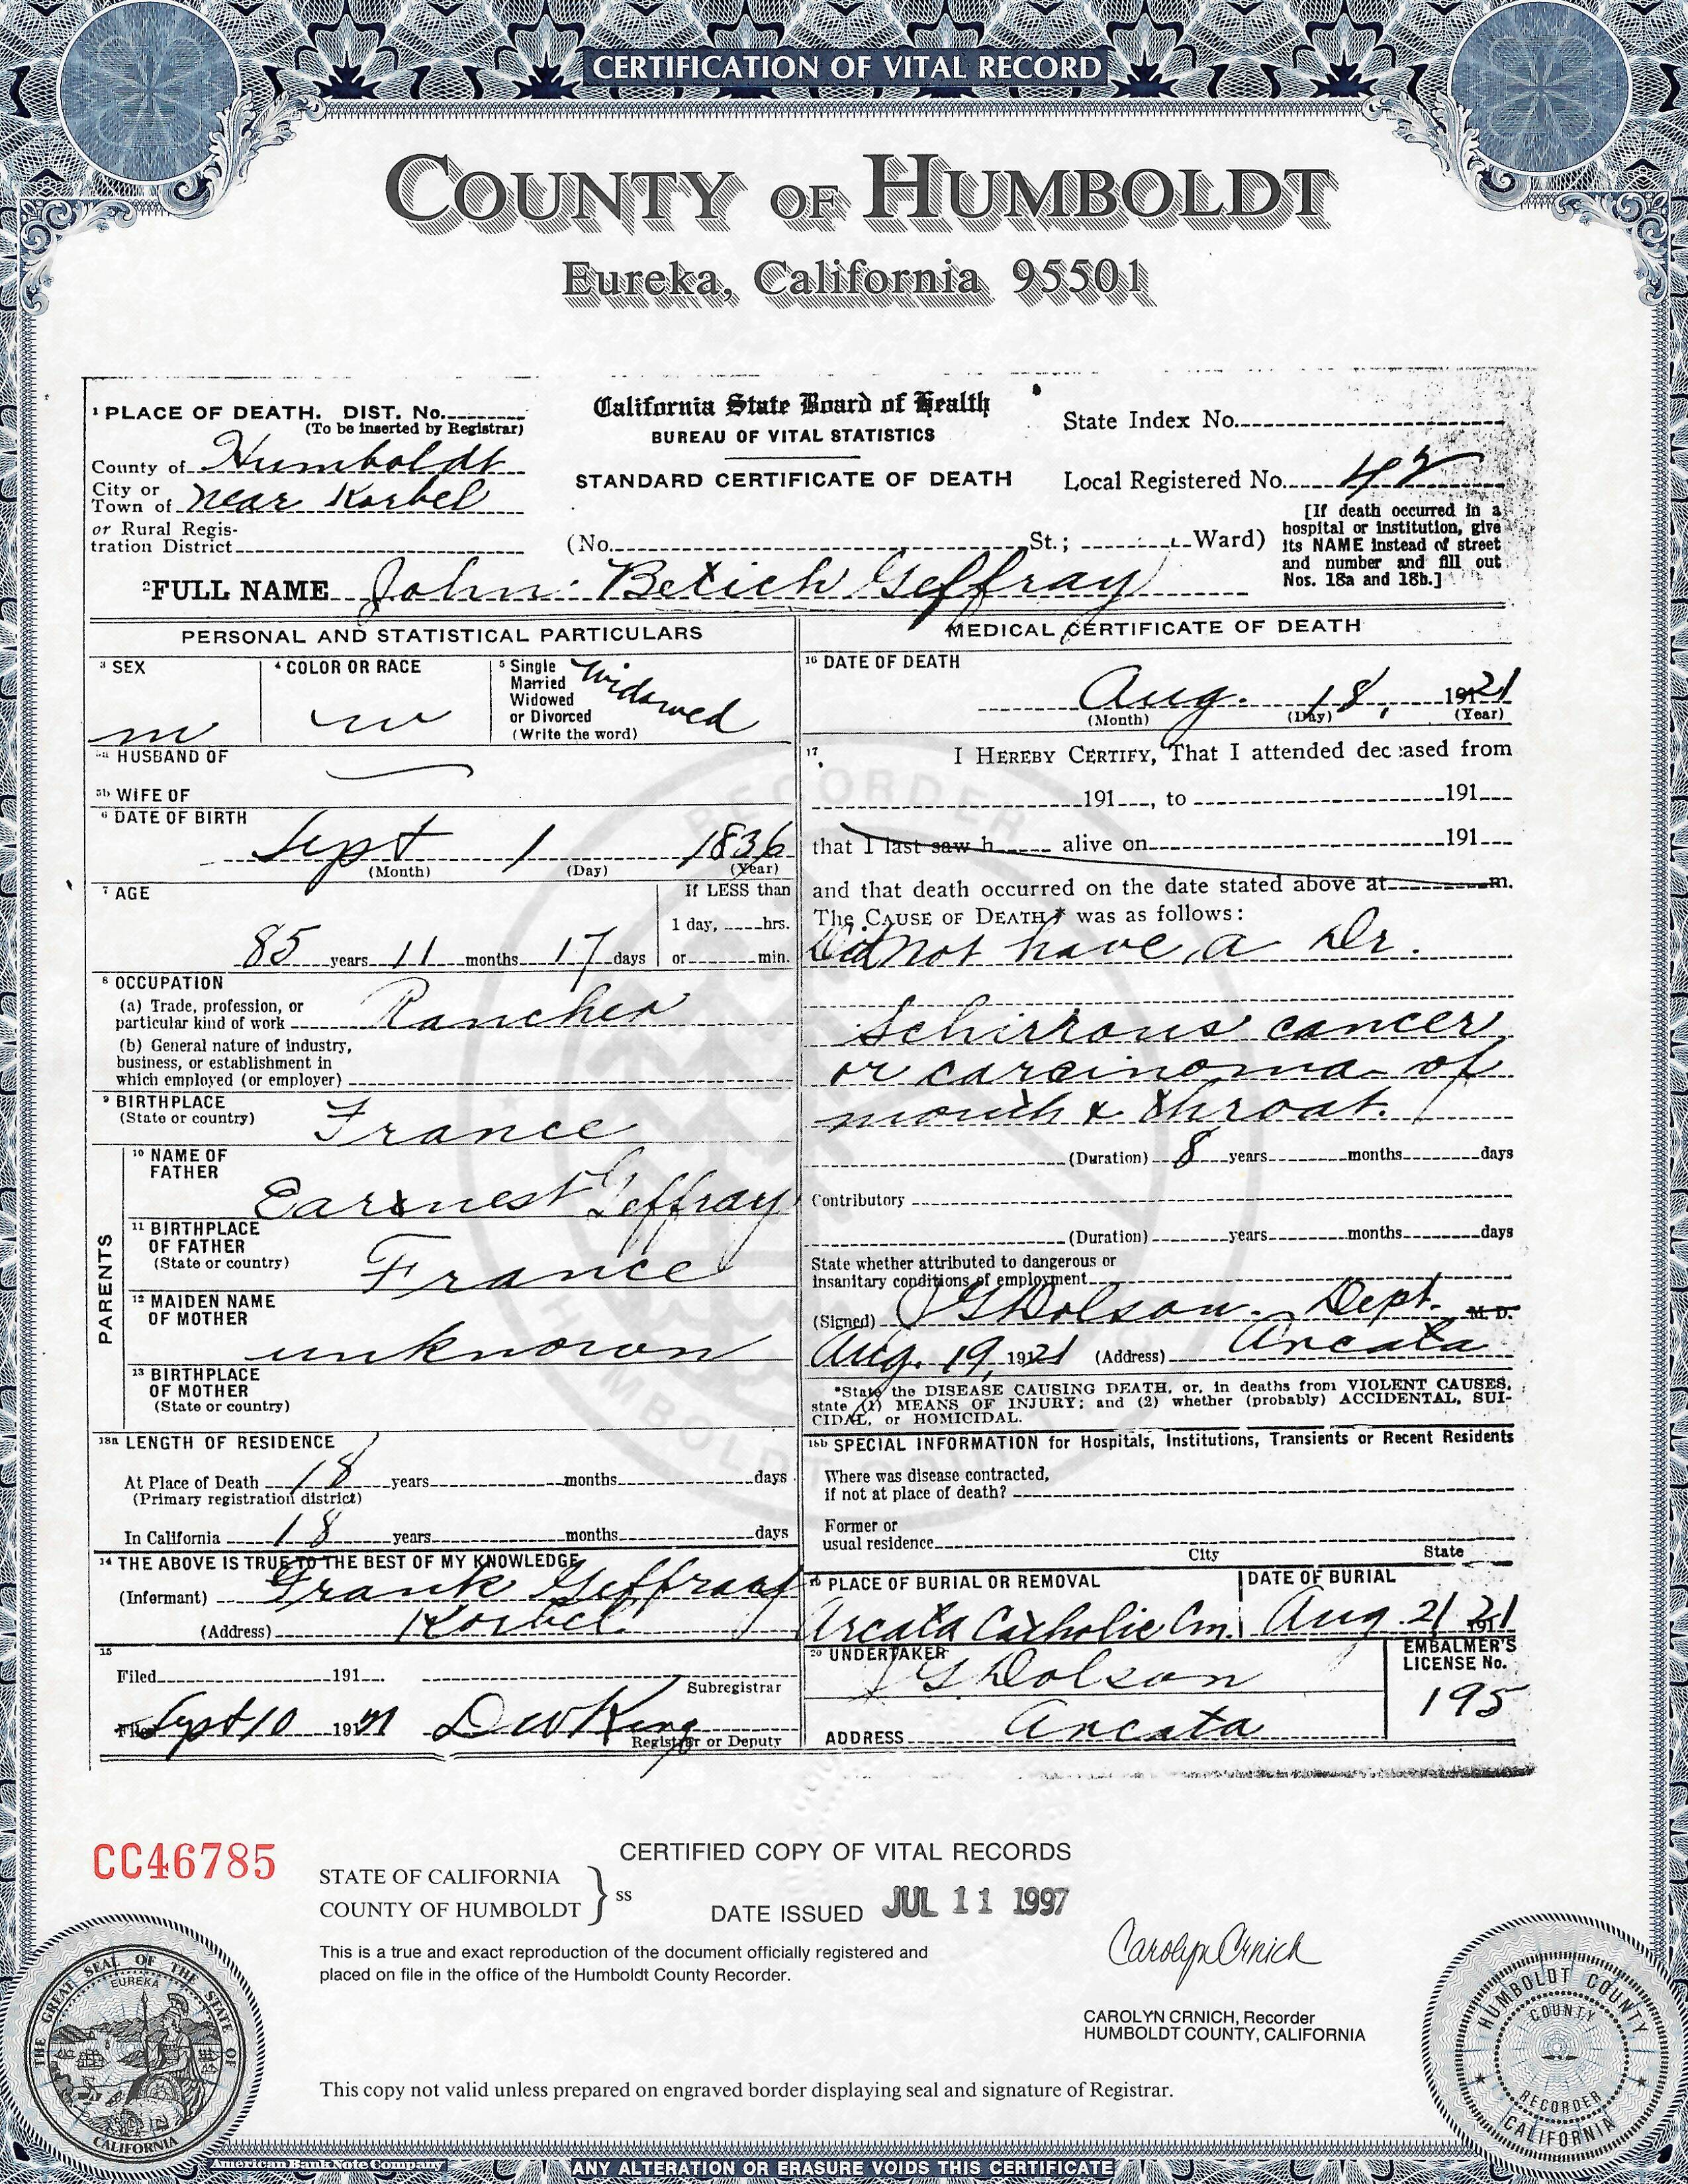 CERTIFICATION OF VITAL RECORD
COUNTY OF HUMBOLDT
Eureka, California 95501
1 PLACE OF DEATH. DIST. No.
(To be inserted by Registrar)
County of Humboldt
City or
Town of near Korbel
or Rural Regis-
tration District
California State Board of Health
BUREAU OF VITAL STATISTICS
STANDARD CERTIFICATE OF DEATH
(No. St.; Ward)
State Index No.
Local Registered No. 42
[If death occurred in a
hospital or institution, give
its NAME instead of street
and number and fill out
Nos. 18a and 18b.]
2 FULL NAME John Betich Geffray
PERSONAL AND STATISTICAL PARTICULARS
3 SEX
m
4 COLOR OR RACE
w
5 Single
Married
Widowed
or Divorced
(Write the word)
Widowed
5a HUSBAND OF
5b WIFE OF
6 DATE OF BIRTH
Sept 1 1836
(Month) (Day) (Year)
7 AGE
85 years 11 months 17 days
If LESS than
1 day, hrs.
or min.
8 OCCUPATION
(a) Trade, profession, or
particular kind of work Rancher
(b) General nature of industry,
business, or establishment in
which employed (or employer)
9 BIRTHPLACE
(State or country) France
PARENTS
10 NAME OF
FATHER
Earnest Geffray
11 BIRTHPLACE
OF FATHER
(State or country) France
12 MAIDEN NAME
OF MOTHER
unknown
13 BIRTHPLACE
OF MOTHER
(State or country)
18a LENGTH OF RESIDENCE
At Place of Death 18 years months days
(Primary registration district)
In California 18 years months days
14 THE ABOVE IS TRUE TO THE BEST OF MY KNOWLEDGE
(Informant) Frank Geffray
(Address) Korbel
15
Filed 191
Subregistrar
Filed Sept 10 1921 D W King
Registrar or Deputy
MEDICAL CERTIFICATE OF DEATH
16 DATE OF DEATH
Aug. 18, 1921
(Month) (Day) (Year)
17. I HEREBY CERTIFY, That I attended deceased from
191, to 191
that I last saw h alive on 191
and that death occurred on the date stated above at m.
The CAUSE OF DEATH* was as follows:
Did not have a Dr.
Schirrous cancer
or carcinoma of
mouth & throat.
(Duration) 8 years months days
Contributory
(Duration) years months days
State whether attributed to dangerous or
insanitary conditions of employment
(Signed) G Dolson. Dept. M. D.
Aug. 19, 1921 (Address) Arcata
*State the DISEASE CAUSING DEATH, or, in deaths from VIOLENT CAUSES,
state (1) MEANS OF INJURY; and (2) whether (probably) ACCIDENTAL, SUI-
CIDAL, or HOMICIDAL.
18b SPECIAL INFORMATION for Hospitals, Institutions, Transients or Recent Residents
Where was disease contracted,
if not at place of death?
Former or
usual residence
City State
19 PLACE OF BURIAL OR REMOVAL
Arcata Catholic Cm.
DATE OF BURIAL
Aug. 21 1921
20 UNDERTAKER
G Dolson
ADDRESS Arcata
EMBALMER'S
LICENSE No.
195
RECORDER
HUMBOLDT
CC46785
CERTIFIED COPY OF VITAL RECORDS
STATE OF CALIFORNIA
COUNTY OF HUMBOLDT } ss
DATE ISSUED JUL 11 1997
This is a true and exact reproduction of the document officially registered and
placed on file in the office of the Humboldt County Recorder.
Carolyn Crnich
CAROLYN CRNICH, Recorder
HUMBOLDT COUNTY, CALIFORNIA
This copy not valid unless prepared on engraved border displaying seal and signature of Registrar.
THE GREAT SEAL OF THE STATE OF CALIFORNIA
EUREKA
HUMBOLDT COUNTY
COUNTY
RECORDER
CALIFORNIA
American Bank Note Company
ANY ALTERATION OR ERASURE VOIDS THIS CERTIFICATE